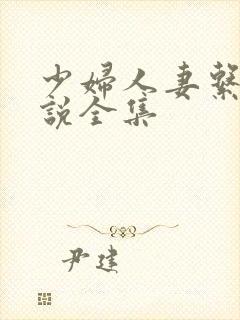 少婦人妻繫
說全集
尹建